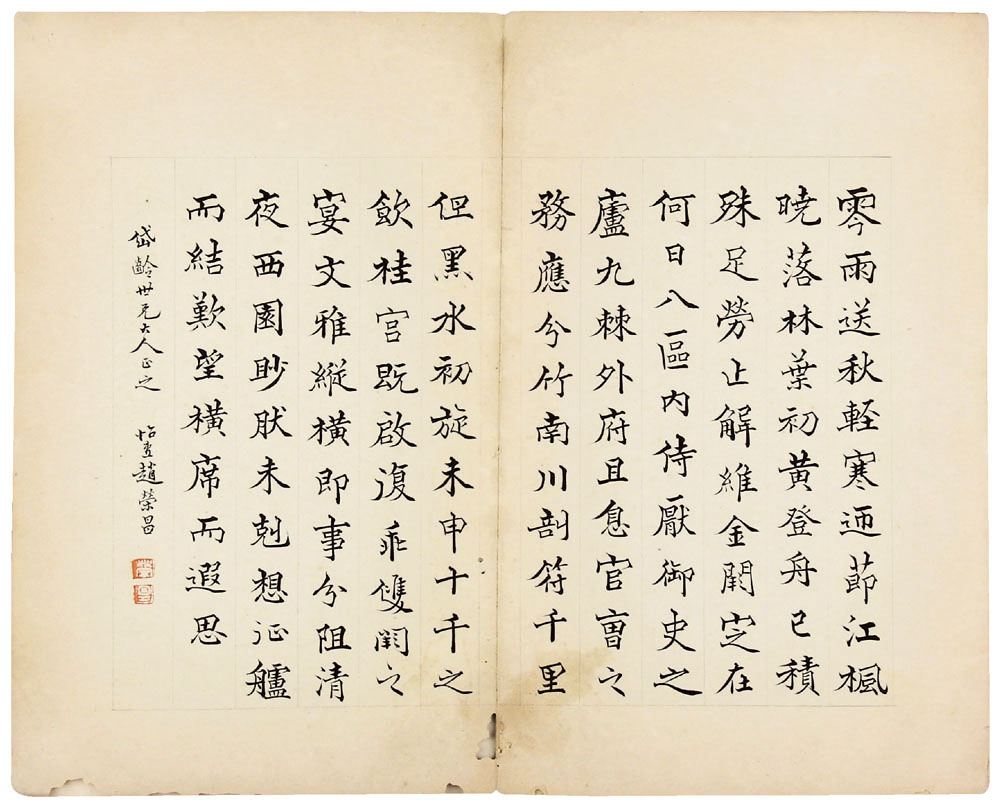 零雨送秋軽寒迊莭江楓
曉落林葉初黄登舟已積
殊足勞止解維金闕㝎在
何日八區内侍厭御史之
廬九棘外府且息官曺之
務應分竹南川剖符千里
但黑水初旋未申十千之
飲桂宫既啟復乖雙闕之
宴文雅縦横即事分阻清
夜西園眇肰未剋想征艫
而結歎望横席而遐思
岱齡世兄大人正之
怡壼趙榮昌